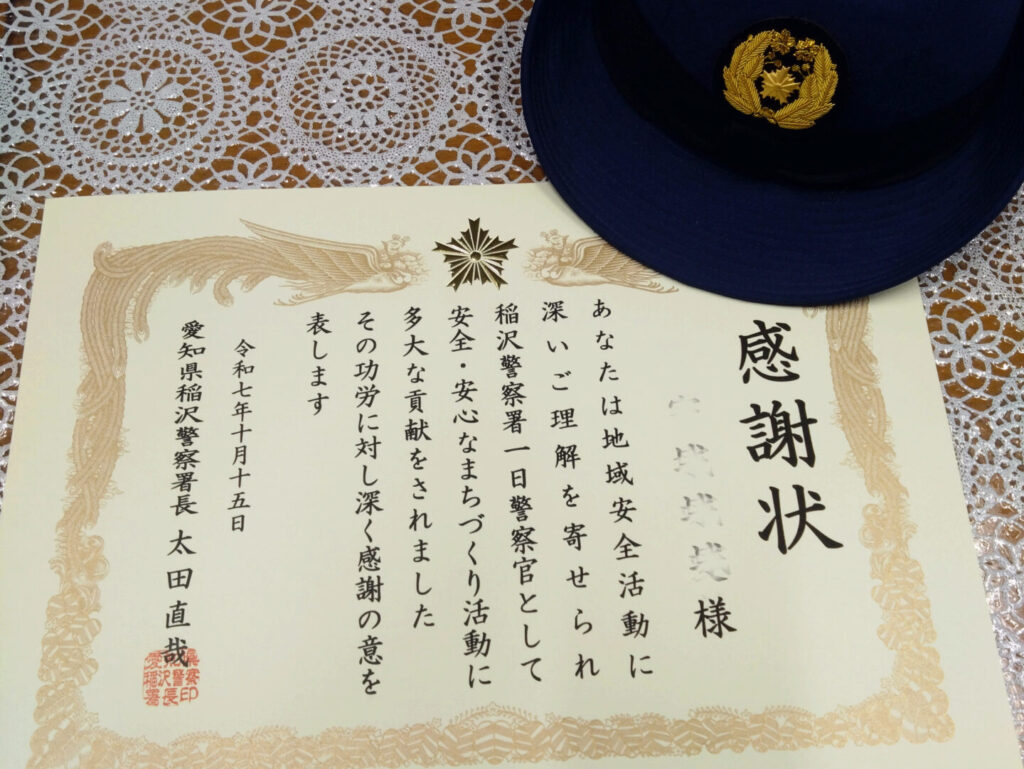 感謝状
様
あなたは地域安全活動に
深いご理解を寄せられ
稲沢警察署一日警察官として
安全・安心なまちづくり活動に
多大な貢献をされました
その功労に対し深く感謝の意を
表します
令和七年十月十五日
愛知県稲沢警察署長 太田直哉